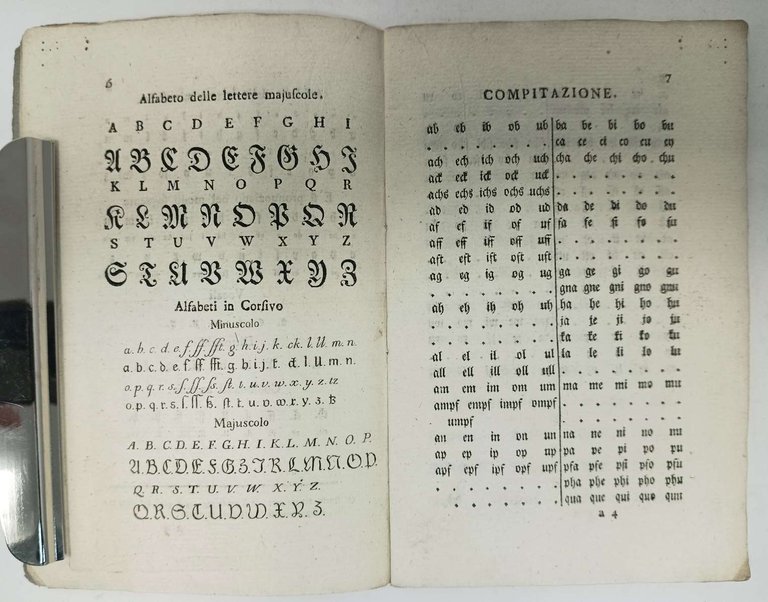 6
Alfabeto delle lettere majuſcole.
A B C D E F G H I
𝔄 𝔅 ℭ 𝔇 𝔈 𝔉 𝔊 ℌ ℑ
K L M N O P Q R
𝔎 𝔏 𝔐 𝔑 𝔒 𝔓 𝔔 ℜ
S T U V W X Y Z
𝔖 𝔗 𝔘 𝔙 𝔚 𝔛 𝔜 ℨ
Alfabeti in Corſivo
Minuscolo
a. b. c. d. e. f. ff. fft. g. h. i. j. k. ck. l. ll. m. n.
a. b. c. d. e. f. ff. fft. g. b. i. j. f. ck. l. ll. m. n.
o. p. q. r. s. ſ. ſſ. ſs. ſt. t. u. v. w. x. y. z. tz
o. p. q. r. s. ſ. ſſ. ß. ſt. t. u. v. w. x. y. z. tz
Majuscolo
A. B. C. D. E. F. G. H. I. K. L. M. N. O. P.
A. B. C. D. E. F. G. H. I. K. L. M. N. O. P.
Q. R. S. T. U. V. W. X. Y. Z.
Q. R. S. T. U. V. W. X. Y. Z.
7
COMPITAZIONE.
ab eb ib ob ub ba be bi bo bu
. . . . . ca ce ci co cu cy
ach ech ich och uch cha che chi cho chu
ack eck ick ock uck . . . . .
achs echs ichs ochs uchs . . . . .
ad ed id od ud da de di do du
af ef if of uf fa fe fi fo fu
aff eff iff off uff . . . . .
aft eft ift oft uft . . . . .
ag eg ig og ug ga ge gi go gu
. . . . . gna gne gni gno gnu
ah eh ih oh uh ha he hi ho hu
. . . . . ja je ji jo ju
. . . . . ka ke ki ko ku
al el il ol ul la le li lo lu
all ell ill oll ull . . . . .
am em im om um ma me mi mo mu
ampf empf impf ompf . . . . .
umpf
an en in on un na ne ni no nu
ap ep ip op up pa pe pi po pu
apf epf ipf opf upf pfa pfe pfi pfo pfu
. . . . . pha phe phi pho phu
. . . . . qua que qui quo quu
a 4